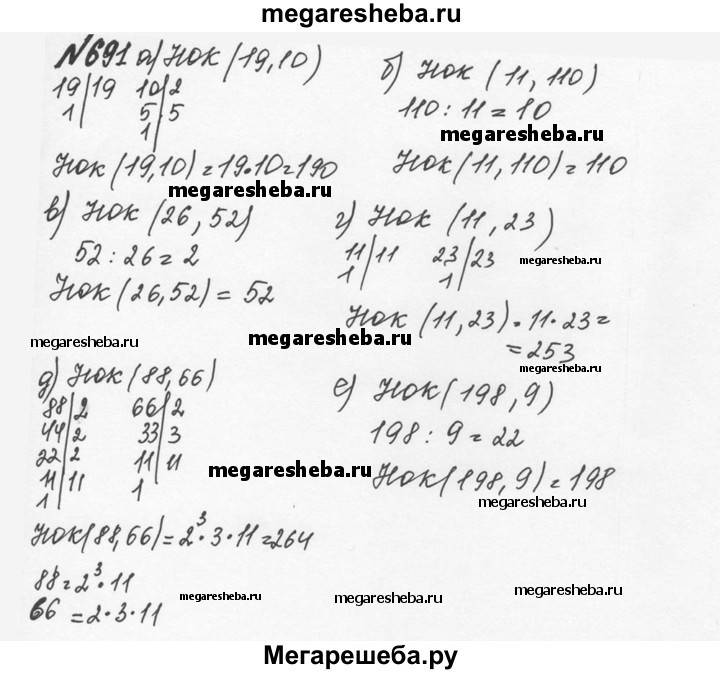 megaresheba.ru
№691 а) НОК (19,10)
19|19 10|2
1| 5|5
1|
НОК (19,10) = 19·10 = 190
б) НОК (11, 110)
110 : 11 = 10
megaresheba.ru
НОК (11, 110) = 110
megaresheba.ru
в) НОК (26, 52)
52 : 26 = 2
НОК (26,52) = 52
megaresheba.ru
г) НОК (11, 23)
11|11 23|23
1| 1|
megaresheba.ru
НОК (11,23) = 11·23 =
= 253
megaresheba.ru
д) НОК (88,66)
88|2 66|2
44|2 33|3
22|2 11|11
11|11 1
1|
НОК (88,66) = 2³·3·11 = 264
88 = 2³·11
66 = 2·3·11
е) НОК (198, 9)
198 : 9 = 22
megaresheba.ru
НОК (198, 9) = 198
megaresheba.ru
megaresheba.ru
megaresheba.ru
megaresheba.ru
Мегарешеба.ру